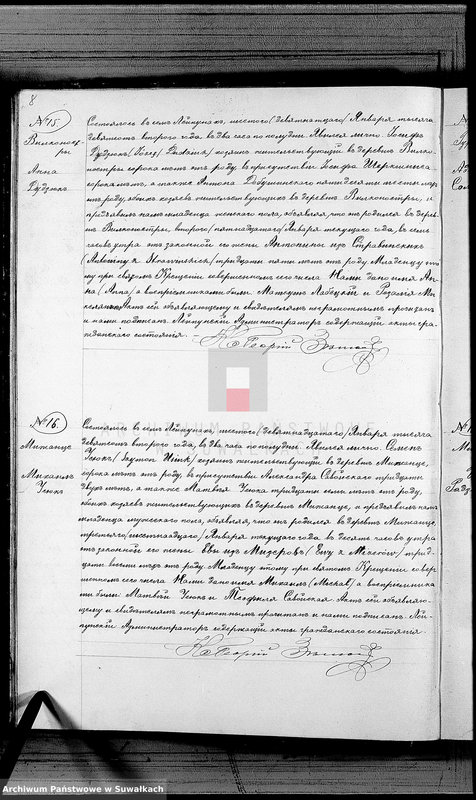 8
№ 15.
Вилконост-
ры
Анна
Дудзюкъ.
Состоялось въ селѣ Лейпунахъ, шестого /девятнадцатаго/ Января тысяча
девятьсотъ второго года, въ два часа по полудни. Явился лично: Іосифъ
Дудзюкъ /Józef Dudziuk/ хозяинъ жительствующій въ деревнѣ Вилко-
ностры сорока лѣтъ отъ роду, въ присутствіи Іосифа
сорока лѣтъ, а также Антона пятидесяти лѣтъ
отъ роду, обоихъ хозяевъ жительствующихъ въ деревнѣ Вилконостры, и
предъявилъ намъ младенца женскаго пола, объявляя, что онъ родился въ дерев-
нѣ Вилконостры, второго /пятнадцатаго/ Января текущаго года, въ семь
часовъ утра отъ законной его жены Антонины изъ
/Antoniny z / тридцати пяти лѣтъ отъ роду. Младенцу это-
му при святомъ Крещеніи совершенномъ сего числа Нами дано имя Ан-
на /Anna/ а воспріемниками были: Матеушъ и Розалія
Актъ сей объявляющему и свидѣтелямъ неграмотнымъ прочитанъ
и нами подписанъ. Лейпунскій Администраторъ содержащій акты гра-
жданскаго состоянія.
№ 16.
Мижанце
Михаилъ
Усюкъ
Состоялось въ селѣ Лейпунахъ, шестого /девятнадцатаго/ Января тысяча
девятьсотъ второго года, въ два часа по полудни. Явился лично: Семенъ
Усюкъ /Szymon / хозяинъ жительствующій въ деревнѣ Мижанце,
сорока лѣтъ отъ роду, въ присутствіи Александра Савойскаго тридцати
двухъ лѣтъ, а также Матвѣя Усюка тридцати семи лѣтъ отъ роду,
обоихъ хозяевъ жительствующихъ въ деревнѣ Мижанце, и предъявилъ намъ
младенца мужескаго пола, объявляя, что онъ родился въ деревнѣ Мижанце,
третьяго /шестнадцатаго/ Января текущаго года въ десять часовъ утра
отъ законной его жены Евы изъ Мизеровъ /Ewy z / трид-
цати лѣтъ отъ роду. Младенцу этому при святомъ Крещеніи совер-
шенномъ сего числа Нами дано имя Михаилъ /Michał/ а воспріемника-
ми были: Матвѣй Усюкъ и Теофиля Савойская. Актъ сей объявляю-
щему и свидѣтелямъ неграмотнымъ прочитанъ и нами подписанъ. Лей-
пунскій Администраторъ содержащій акты гражданскаго состоянія.
Archiwum Państwowe w Suwałkach